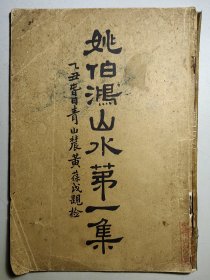 姚伯鴻山水第一集
乙丑㫺日青山農黃葆戉題檢